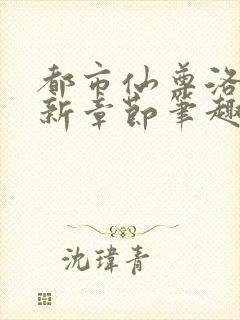 都市仙尊洛
新章节笔趣
沈瑋青